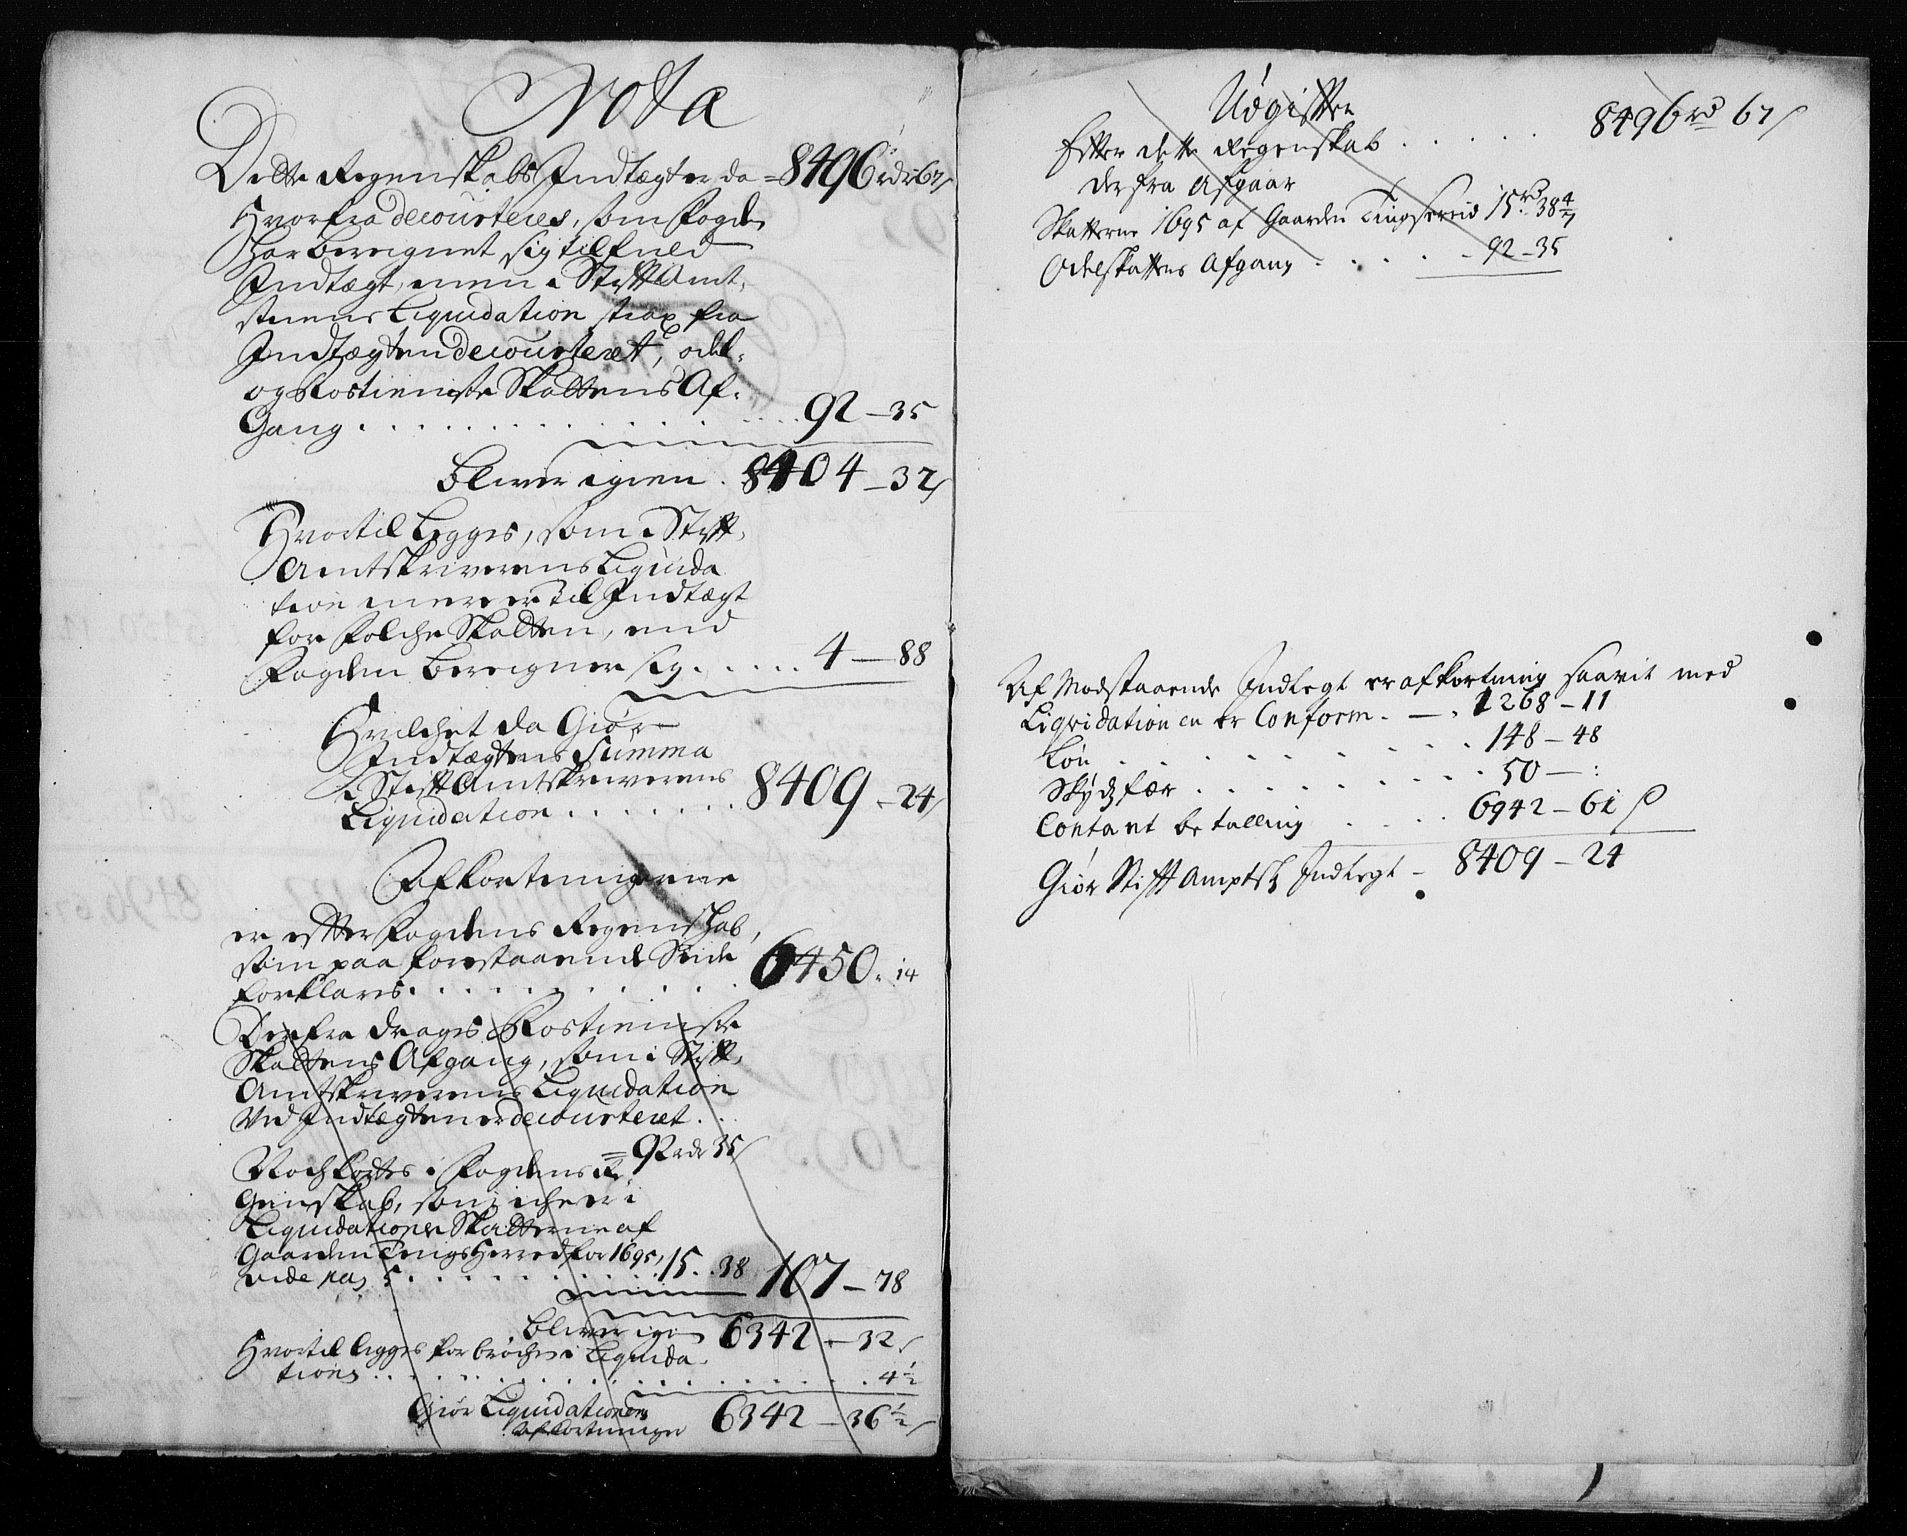 Nota
Dette Regenskabs Indtægter da = 8496 rdr 67 s
Hvorfra decourteres, som Fogden
Har beregnet sig til fuld
Indtægt, men i StiftAmt,
sknens Liquidation strax fra
Indtægten decourteret, odel-
og Rostieniste Skattens Af-
Gang . . . . . . . . . 92 – 35
bliver igien . 8404 – 32 s
Hvortil Legges, som i Stift,
Amtskriverens Liquida
tion meere er til Indtægt
for Folche Skatten, end
Fogden beregner sig . . . . . 4 – 88
Hvilchet da Giør
Indtægtens Summa
i StiftAmtskriverens
Liquidation . . . . . . 8409 – 24 s
Afkortningerne
er efter Fogdens Regenschab,
som paa forestaaende Side
forklaris . . . . . . . . . 6450 . 14
Derfra drages Rostieniste
Skattens Afgang, som i Stift,
Amtskriverens Liquidation
Ved Indtægten er decourteret . .
= 92 rdr 35 s
Noch kortes i Fogdens Re
Genskab, som iche er i
Liquidationen Skatterne af
Gaarden Tingsherred for 1695,
vide pag 5 . . . . . . . 15 . . 38 107 – 78
bliver igien 6342 – 32 s
Hvortil legges for brøchen i Liquida-
tionen . . . . . . . . . . 4 1/2
Giør Liquidationens
Afkortninger 6342 – 36 1/2 s
Udgiften
Efter dette Regenskab . . . . . 8496 rd 67 s
derfra Afgaar
Skatterne 1695 af Gaarden Tingherrid 15 rd 38 4/7
Odelskattens Afgang . . . . . . 92 – 35
Af Modstaaende Indtegt er afkortning saavit med
Liqvidationen er Conform . – . 1268 – 11
Løn . . . . . . . . . 148 – 48
Skydzfær . . . . . . . . 50 – :
Contant betalling . . . . 6942 – 61 s
Giør Stift Amptsk Indtegt – 8409 – 24